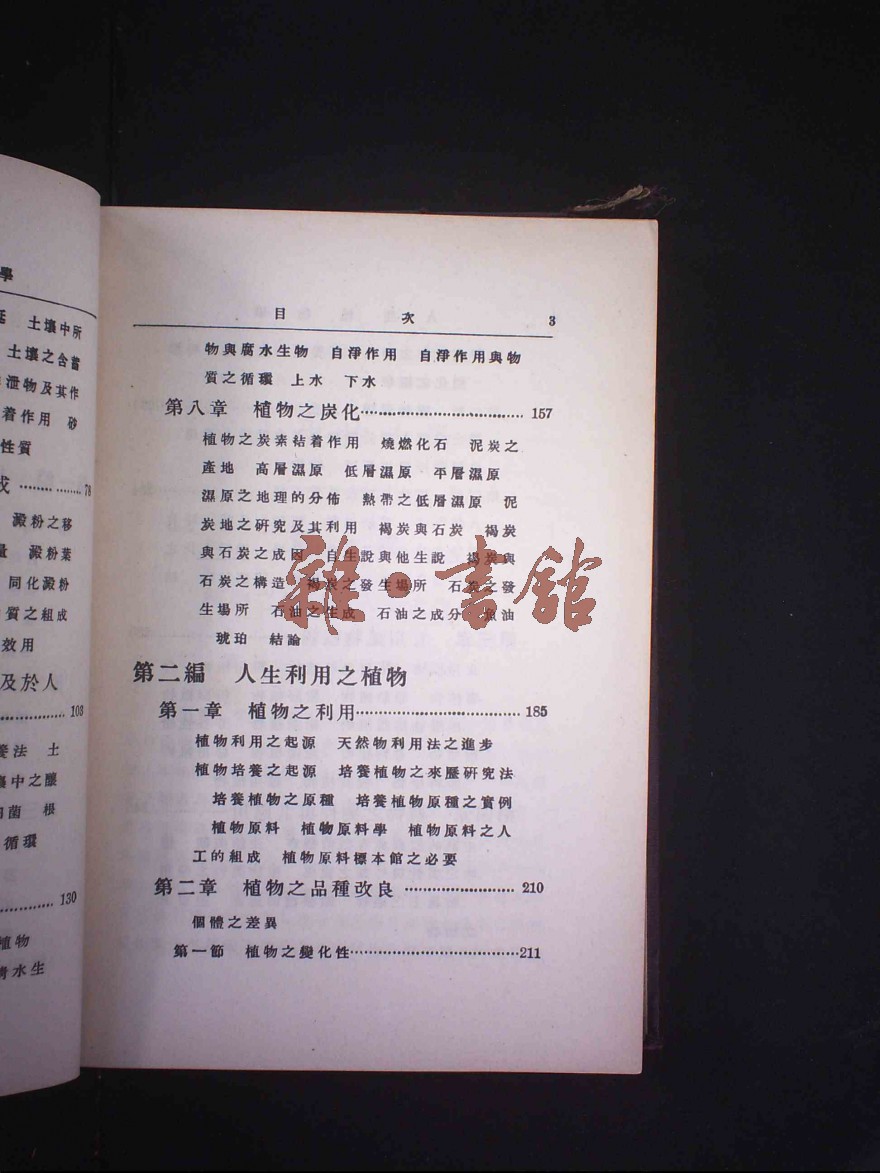 學
土壤中所
土壤之含蓄
泄物及其作
着作用 砂
性質
成 ……………… 78
澱粉之移
量 澱粉葉
同化澱粉
質之組成
效用
及於人
……………… 103
養法 土
壤中之釀
菌 根
循環
……………… 130
植物
水生
目 次 3
物與腐水生物 自淨作用 自淨作用與物
質之循環 上水 下水
第八章 植物之炭化……………………………… 157
植物之炭素粘着作用 燒燃化石 泥炭之
產地 高層濕原 低層濕原 平層濕原
濕原之地理的分佈 熱帶之低層濕原 泥
炭地之硏究及其利用 褐炭與石炭 褐炭
與石炭之成因 自生說與他生說 褐炭與
石炭之構造 褐炭之發生場所 石炭之發
生場所 石油之生成 石油之成分 魚油
琥珀 結論
第二編 人生利用之植物
第一章 植物之利用……………………………… 185
植物利用之起源 天然物利用法之進步
植物培養之起源 培養植物之來歷硏究法
培養植物之原種 培養植物原種之實例
植物原料 植物原料學 植物原料之人
工的組成 植物原料標本館之必要
第二章 植物之品種改良 …………………… 210
個體之差異
第一節 植物之變化性………………………………211
雜·書館